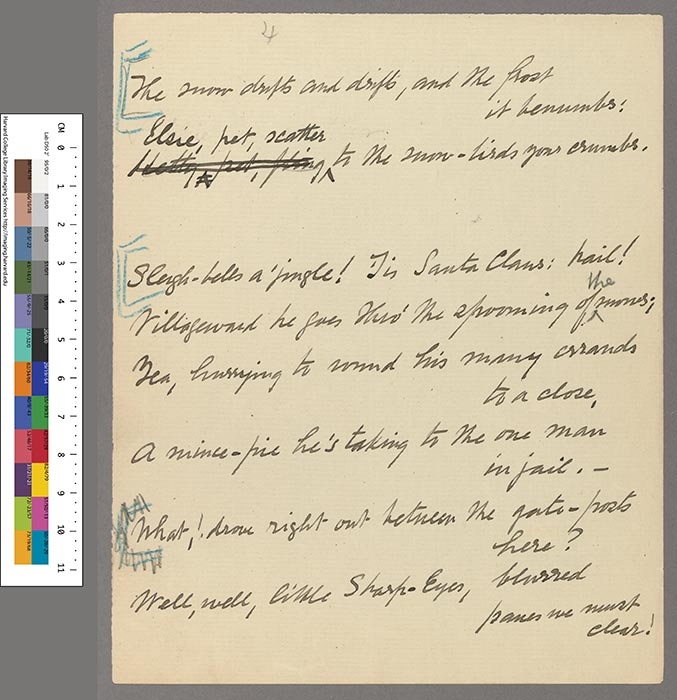 4
The snow drifts and drifts, and the frost
it benumbs:
Elsie, pet, scatter
Hetty, pet, fling to the snow-birds your crumbs.
Sleigh-bells a'jingle! Tis Santa Claus: hail!
the
Villageward he goes thro' the spooming of snows;
Yea, hurrying to round his many errands
to a close,
A mince-pie he's taking to the one man
in jail. —
What,! drove right out between the gate-posts
here?
Well, well, little Sharp-Eyes, blurred
panes we must
clear!
CM 0 1 2 3 4 5 6 7 8 9 10 11
Harvard College Library Imaging Services http://imaging.harvard.edu